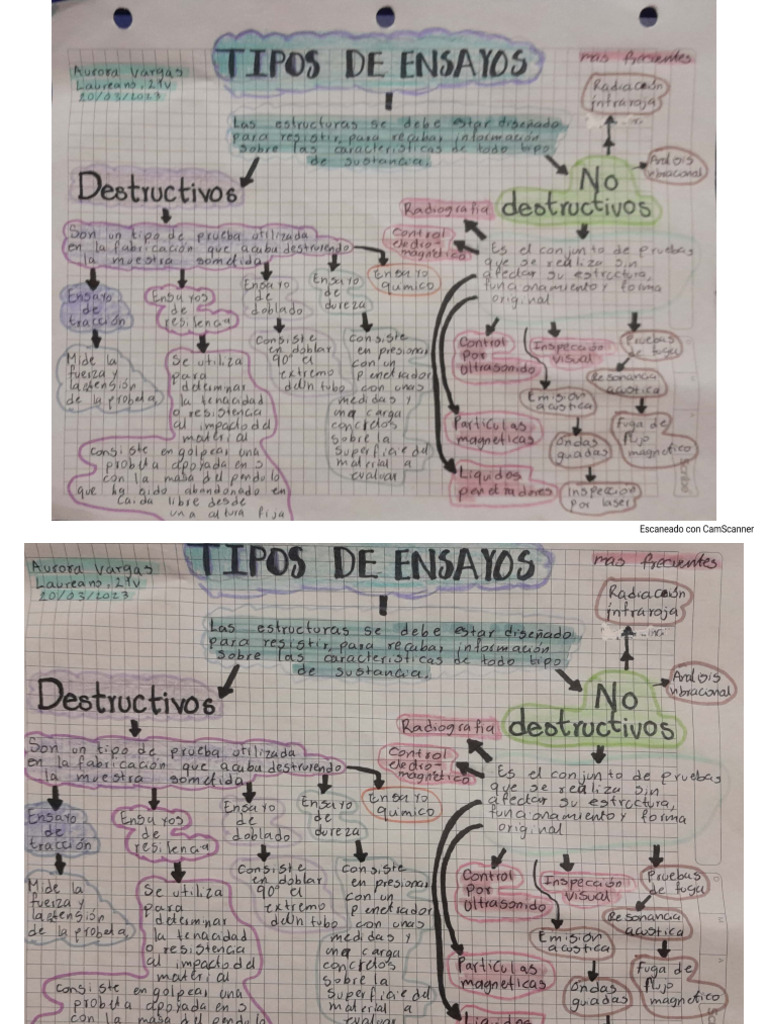 TIPOS DE ENSAYOS
Aurora Vargas
Laureano, 21v
20/03/2023
mas frecuentes
Radiación
infraroja
Las estructuras se debe estar diseñado
para resistir, para recubar información
sobre las características de todo tipo
de sustancia.
Destructivos
No
destructivos
vibracional
Son un tipo de prueba utilizada
en la fabricación que acaba destruyendo
la muestra sometida
Ensayo
de
tracción
Mide la
fuerza y
la tensión
de la probeta
Ensayos
de
resilencia
Se utiliza
para
determinar
la tenacidad
o resistencia
al impacto del
material
consiste en golpear una
probeta apoyada en 3
con la masa del pendulo
que ha sido abandonado en
caida libre desde
una altura fija
Ensayo
de
doblado
Consiste
en doblar
90° el
extremo
de un tubo
Ensayo
de
dureza
Consiste
en presionar
con un
penetrador
con unas
medidas y
una carga
concretos
sobre la
superficie del
material a
evaluar
Ensayo
quimico
Radiografia
Control
electro-
magnetica
Es el conjunto de pruebas
que se realiza sin
afectar su estrctura,
funcionamiento y forma
original
Control
por
ultrasonido
Particulas
magneticas
Liquidos
penetradores
Inspección
visual
Emisión
acustica
Ondas
guiadas
Inspeccion
por laser
Pruebas
de fuga
Resonancia
acustica
Fuga de
flujo
magnetico
Scribe
Escaneado con CamScanner
TIPOS DE ENSAYOS
Aurora Vargas
Laureano, 21v
20/03/2023
mas frecuentes
Radiación
infraroja
Las estructuras se debe estar diseñado
para resistir, para recubar información
sobre las características de todo tipo
de sustancia.
Destructivos
No
destructivos
vibracional
Son un tipo de prueba utilizada
en la fabricación que acaba destruyendo
la muestra sometida
Ensayo
de
tracción
Mide la
fuerza y
la tensión
de la probeta
Ensayos
de
resilencia
Se utiliza
para
determinar
la tenacidad
o resistencia
al impacto del
material
consiste en golpear una
probeta apoyada en 3
con la masa del pendulo
Ensayo
de
doblado
Consiste
en doblar
90° el
extremo
de un tubo
Ensayo
de
dureza
Consiste
en presionar
con un
penetrador
con unas
medidas y
una carga
concretos
sobre la
superficie del
material a
evaluar
Ensayo
quimico
Radiografia
Control
electro-
magnetica
Es el conjunto de pruebas
que se realiza sin
afectar su estrctura,
funcionamiento y forma
original
Control
por
ultrasonido
Particulas
magneticas
Liquidos
Inspección
visual
Emisión
acustica
Ondas
guiadas
Pruebas
de fuga
Resonancia
acustica
Fuga de
flujo
magnetico